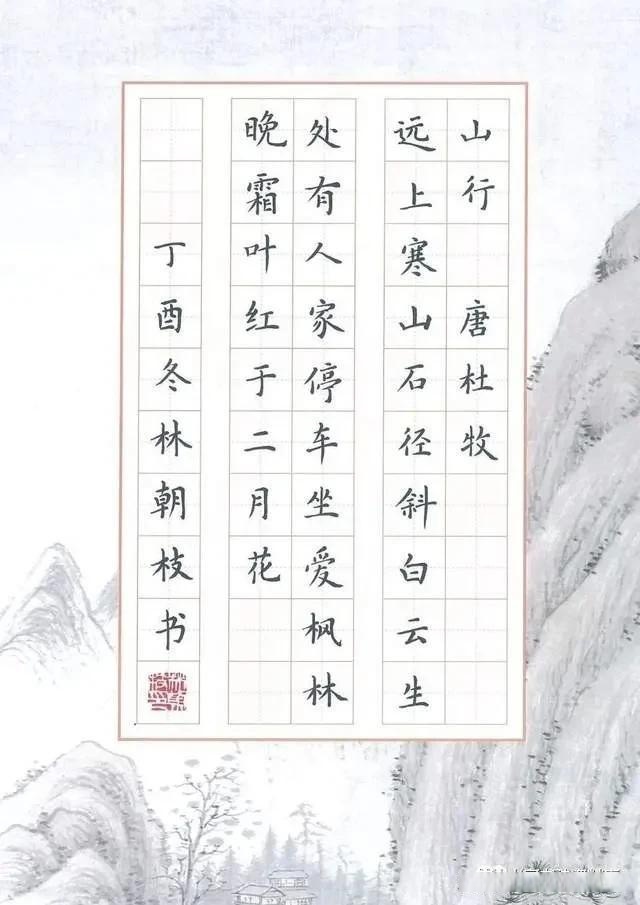 山行 唐杜牧
远上寒山石径斜白云生
处有人家停车坐爱枫林
晚霜叶红于二月花
丁酉冬林朝枝书